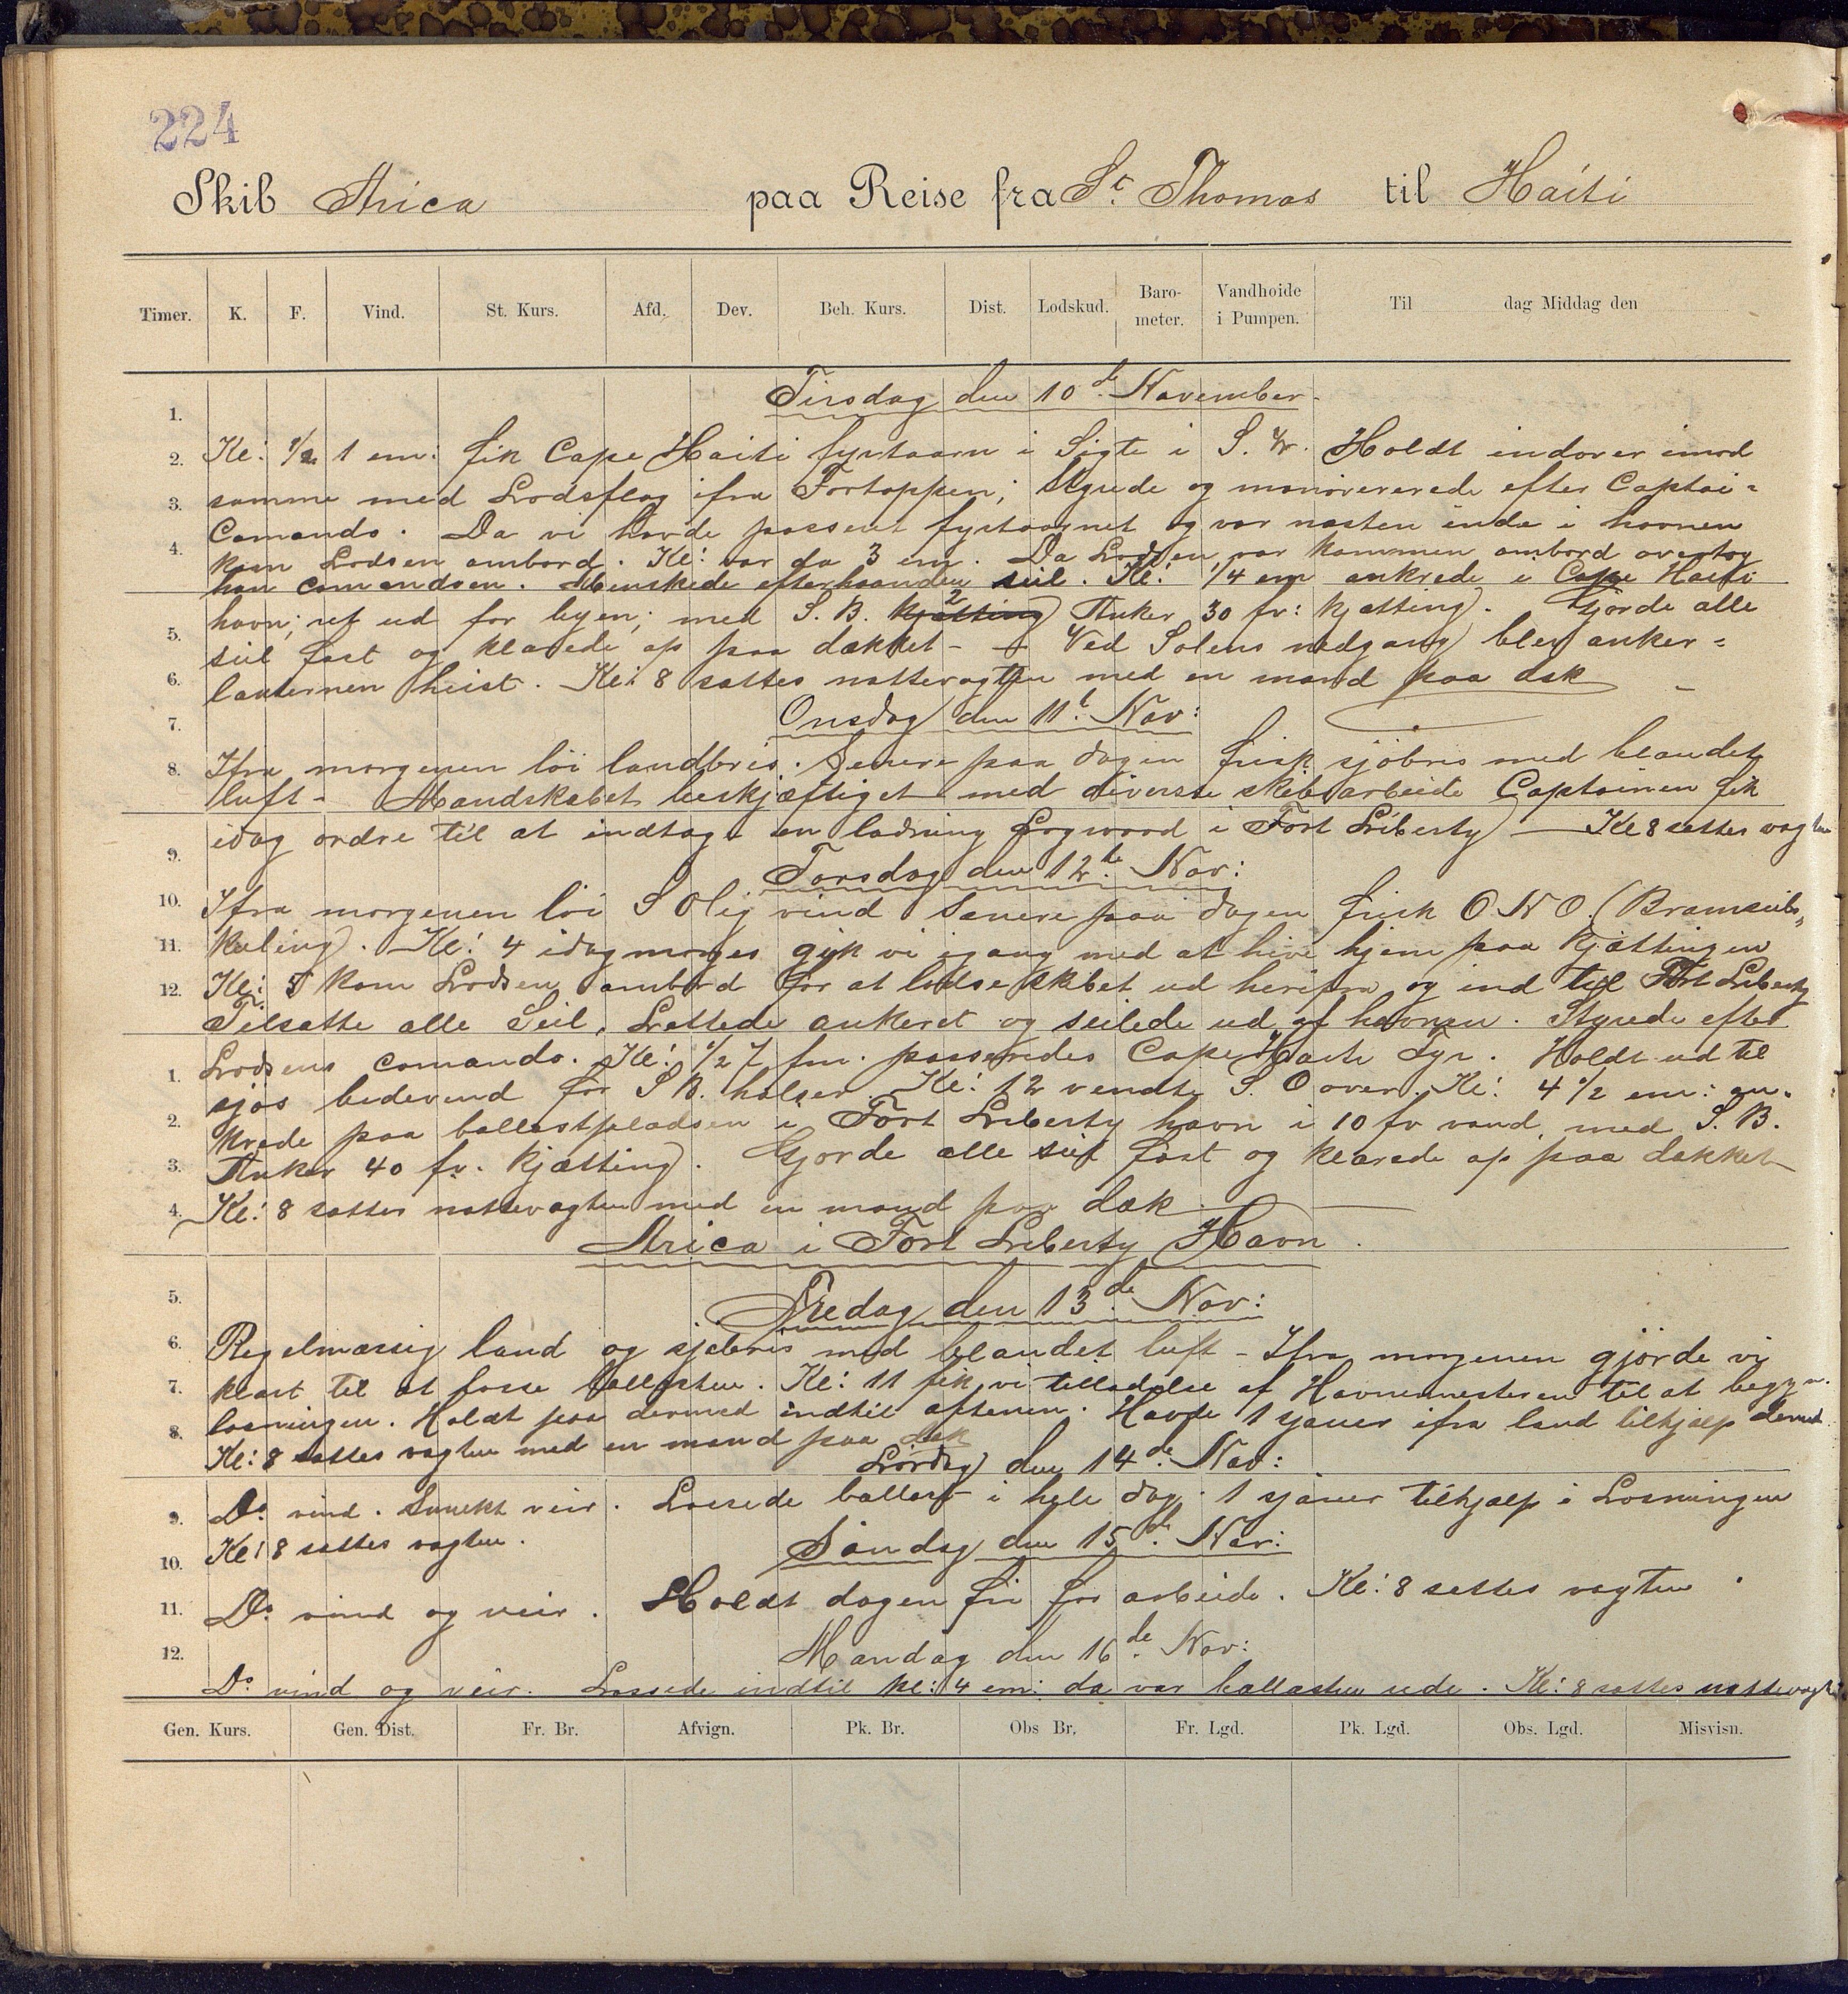 224
Skib Arica paa Reise fra St. Thomas til Haiti
Timer. K. F. Vind. St. Kurs. Afd. Dev. Beh. Kurs. Dist. Lodskud. Baro-meter. Vandhoide i Pumpen. Til dag Middag den
Tirsdag den 10de November.
1.
2. Kl: 1/2 1 em: fik Cape Haiti fyrtaarn i Sigte i S. W. Holdt indover imod
3. samme med Lodsflag ifra Fortoppen; styrede og manövrerede efter Captai=
Comando. Da vi havde passeret fyrtaarnet og var næsten inde i havnen
4. kom Lodsen ombord. Kl: var da 3 em. Da Lodsen var kommen ombord overtog
han comandoen. Menskede efterhaanden seil. Kl: 1/4 em ankrede i Cape Haiti
havn; ret ud for byen; med S. B. 2 kjætting Anker 30 fv: kjætting. Gjorde alle
5. seil fast og klarede op paa dækket - Ved Solens nedgang blev anker=
6. lanternen heist. Kl: 8 sattes nattevagten med en mand paa dæk
7. Onsdag den 11te Nov:
8. Ifra morgenen löi landbris. Senere paa dagen frisk sjöbris med blandet
luft - Mandskabet beskjæftiget med diverse skibsarbeide Captainen fik
idag ordre til at indtage en ladning Logwood i Fort Liberty — Kl 8 sattes vagten
9. Torsdag den 12te Nov:
10. Ifra morgenen löi S Olig vind Senere paa dagen frisk O N O. (Bramseils„
11. kuling). Kl: 4 idagmorges gik vi igang med at hive hjem paa kjættingen
12. Kl: 5 kom Lodsen ombord for at lodse skibet ud herifra og ind til Fort Liberty
Tilsatte alle Seil, Lettede ankeret og seilede ud af havnen. Styrede efter
1. Lodsens comando. Kl: 1/2 7 fm. passeredes Cape Haiti Fyr. Holdt ud til
sjös bidevend for S B. halser Kl: 12 vendte S. O over. Kl: 4 1/2 em: an„
2. krede paa ballastpladsen i Fort Liberty havn i 10 fv vand, med S. B.
3. Anker 40 fv. kjætting. Gjorde alle seil fast og klarede op paa dækket
4. Kl: 8 sattes nattevagten med en mand paa dæk.
Arica i Fort Liberty Havn.
5. Fredag den 13de Nov:
6. Regelmæssig land og sjöbris med blandet luft - Ifra morgenen gjörde vi
7. klart til at losse ballasten. Kl: 11 fik vi tilladelse af Havnemesteren til at begyn.
8. losningen. Holdt paa dermed indtil aftenen. Havde 1 sjauer ifra land tilhjælp dermed
Kl: 8 sattes vagten med en mand paa dæk
Lördag den 14de Nov:
9. Do. vind. Smukt veir. Lossede ballast i hele dag. 1 sjauer tilhjælp i Losningen
Kl: 8 sattes vagten.
10. Söndag den 15de Nov:
11. Do. vind og veir. Holdt dagen fri for arbeide. Kl: 8 sattes vagten.
12. Mandag den 16de Nov:
Do. vind og veir. Lossede indtil kl: 4 em: da var ballasten ude. Kl: 8 sattes nattevagt
Gen. Kurs. Gen. Dist. Fr. Br. Afvign. Pk. Br. Obs Br. Fr. Lgd. Pk. Lgd. Obs. Lgd. Misvisn.